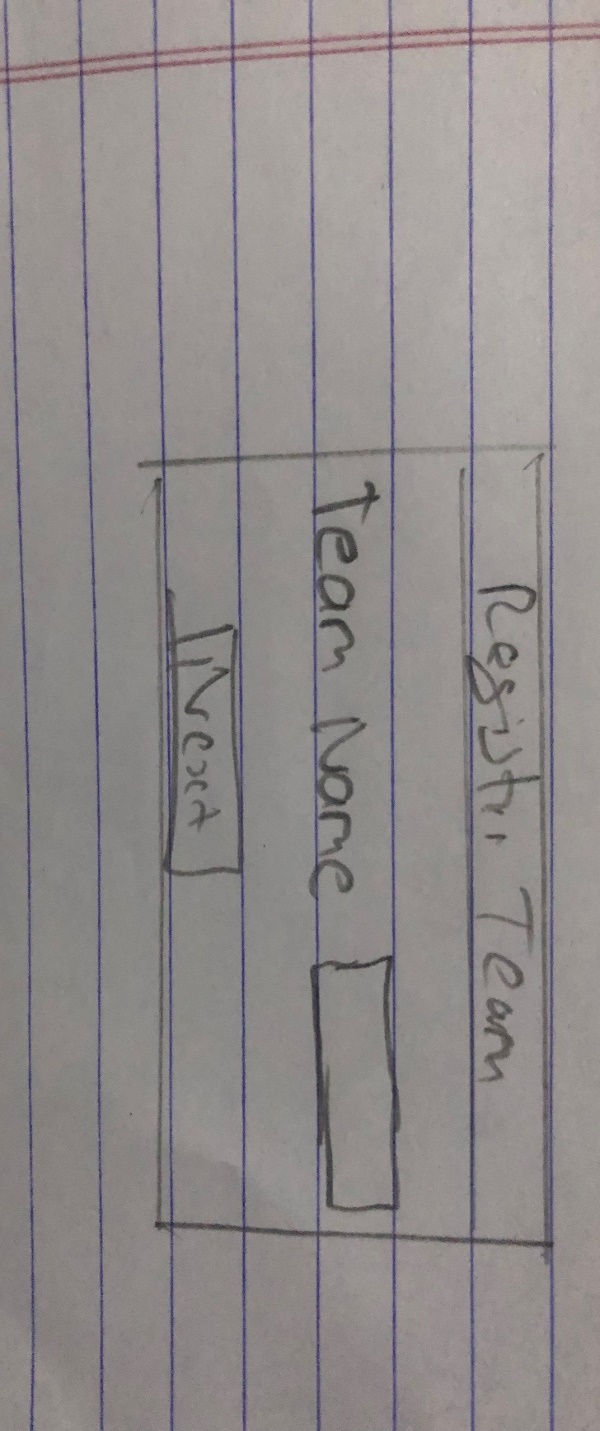 Register Team
Team Name
Next